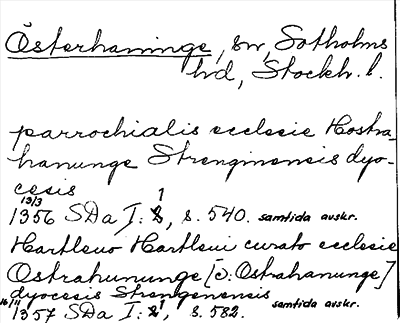 Österhaninge, sn, Sotholms
hd, Stockh. l.
parrochialis ecclesie Hostra-
hanunge Strenginensis dyo-
cesis
13/3 1356 SDa I:1, s. 540. samtida avskr.
Hartleuo Hartleui curato ecclesie
Ostrahununge [ɔ: Ostrahanunge]
dyocesis Strengenensis
16/11 1357 SDa I:1, s. 582. samtida avskr.